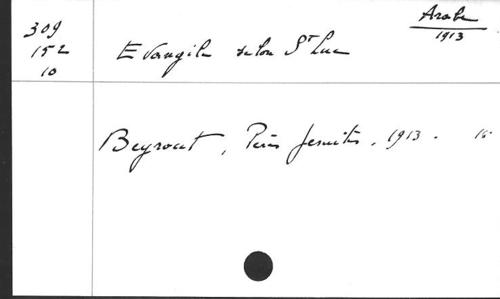 Arabe
1913
309
152
10
Evangile selon St Luc
Beyrout, Pères Jésuites, 1913.